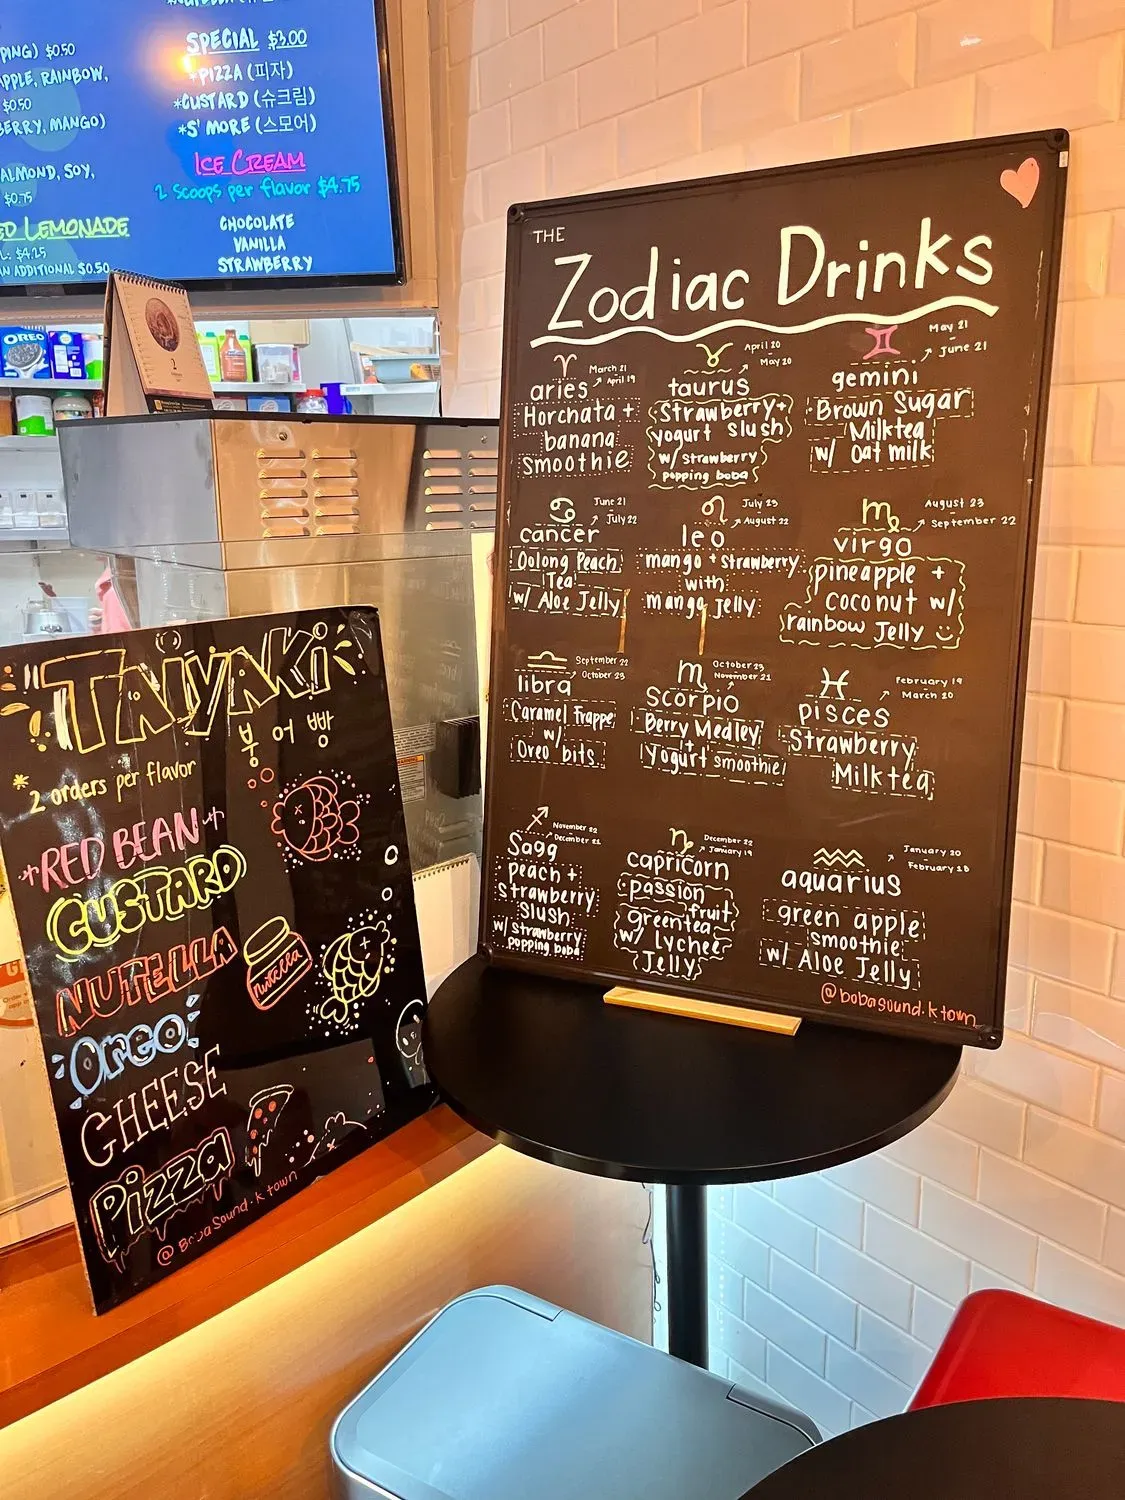 PING) $0.50
APPLE, RAINBOW,
$0.50
BERRY, MANGO)
ALMOND, SOY,
$0.75
ED LEMONADE
L: $4.25
AN ADDITIONAL $0.50
SPECIAL $3.00
*PIZZA (피자)
*CUSTARD (슈크림)
*S'MORE (스모어)
ICE CREAM
2 Scoops per flavor $4.75
CHOCOLATE
VANILLA
STRAWBERRY
OREO
THE
Zodiac Drinks
aries
March 21
April 19
Horchata +
banana
smoothie
taurus
April 20
May 20
Strawberry +
yogurt slush
w/ strawberry
popping boba
gemini
May 21
June 21
Brown Sugar
Milktea
w/ Oat milk
cancer
June 21
July 22
Oolong Peach
Tea
w/ Aloe Jelly
leo
July 23
August 22
mango + strawberry
with
mango jelly
virgo
August 23
September 22
pineapple +
coconut w/
rainbow Jelly
libra
September 22
October 23
Caramel Frappe
w/
Oreo bits
scorpio
October 23
November 21
Berry Medley
+
Yogurt smoothie
pisces
February 19
March 20
Strawberry
Milktea
Sagg
November 22
December 21
peach +
strawberry
slush
w/ strawberry
popping boba
capricorn
December 22
January 19
passion
fruit
greentea
w/ lychee
Jelly
aquarius
January 20
February 18
green apple
smoothie
w/ Aloe Jelly
@bobasound.ktown
TAIYAKI
붕어빵
* 2 orders per flavor
RED BEAN
CUSTARD
NUTELLA
nutella
Oreo
CHEESE
Pizza
@BobaSound.ktown